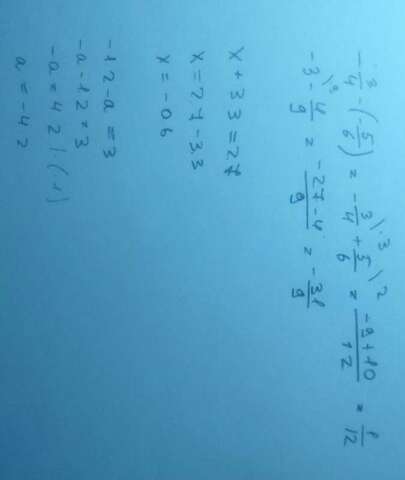 -3/4 - (-5/6) = -3/4\·3 + 5/6\2 = (-9+10)/12 = 1/12
-3\9 - 4/9 = (-27-4)/9 = -31/9
x + 3,3 = 2,7
x = 2,7 - 3,3
x = -0,6
-1,2 - a = 3
-a - 1,2 = 3
-a = 4,2 | · (-1)
a = -4,2